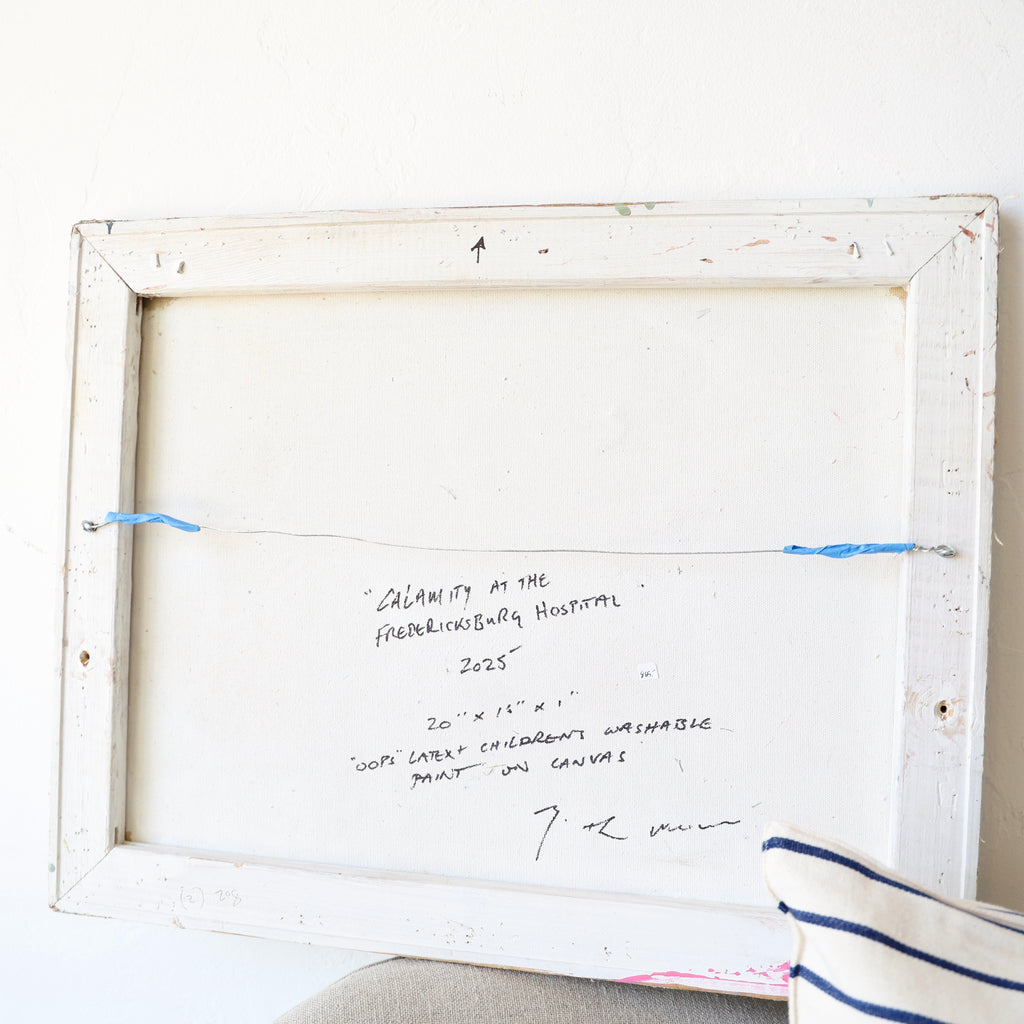 "CALAMITY AT THE
FREDERICKSBURG HOSPITAL"
2025
20" x 1" x 1"
"OOPS" LATEX + CHILDREN'S WASHABLE
PAINT ON CANVAS
(2) 208